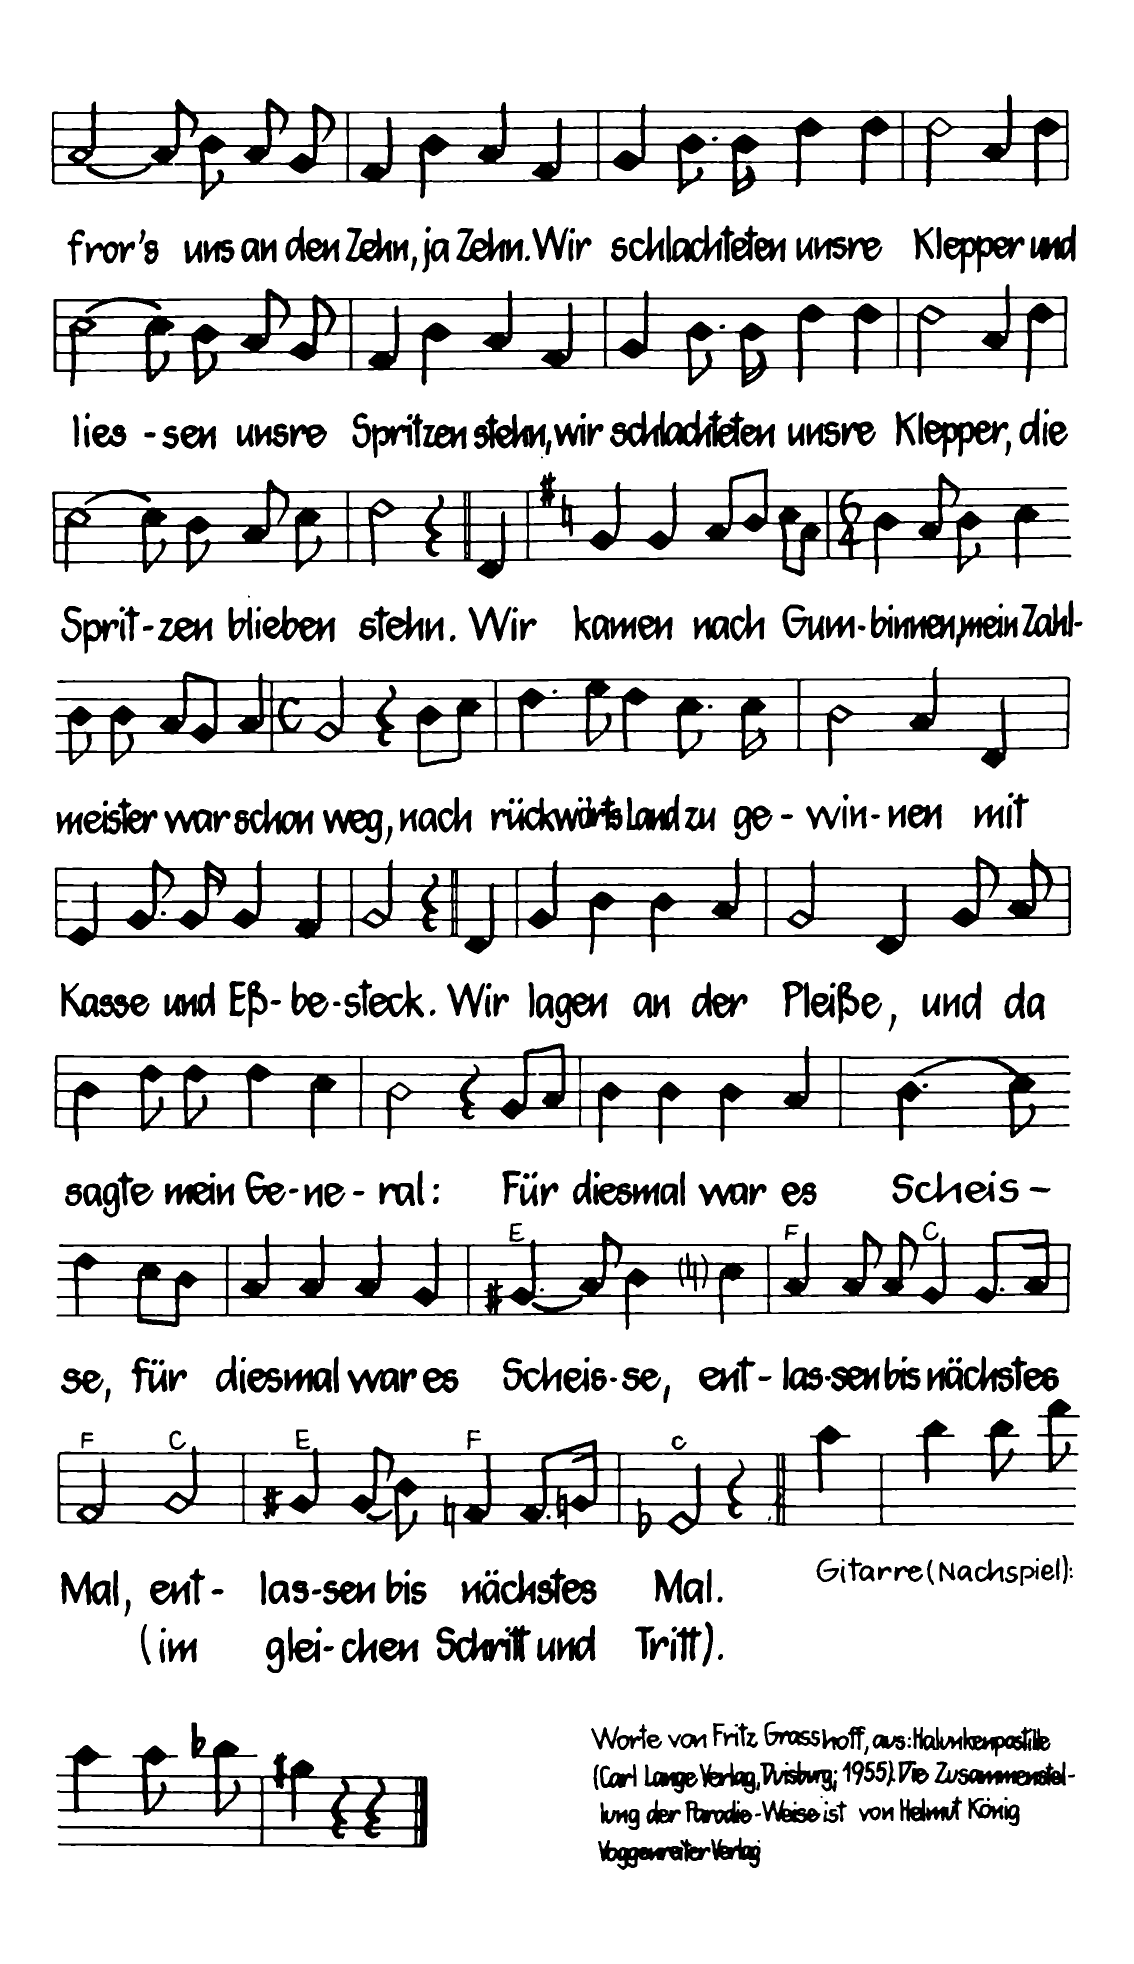 fror's uns an den Zehn, ja Zehn. Wir schlachteten unsre Klepper und
lies - sen unsre Spritzen stehn, wir schlachteten unsre Klepper, die
6
4
Sprit-zen blieben stehn. Wir kamen nach Gum-binnen, mein Zahl-
C
meister war schon weg, nach rückwärts Land zu ge - win - nen mit
Kasse und Eß-be-steck. Wir lagen an der Pleiße, und da
sagte mein Ge-ne-ral: Für diesmal war es Scheis -
E F C
se, für diesmal war es Scheis-se, ent - las-sen bis nächstes
F C E F c
Gitarre (Nachspiel):
Mal, ent - las-sen bis nächstes Mal.
(im glei-chen Schritt und Tritt).
Worte von Fritz Grasshoff, aus: Halunkenpostille
(Carl Lange Verlag, Duisburg; 1955). Die Zusammenstel-
lung der Parodie-Weise ist von Helmut König
Voggenreiter Verlag